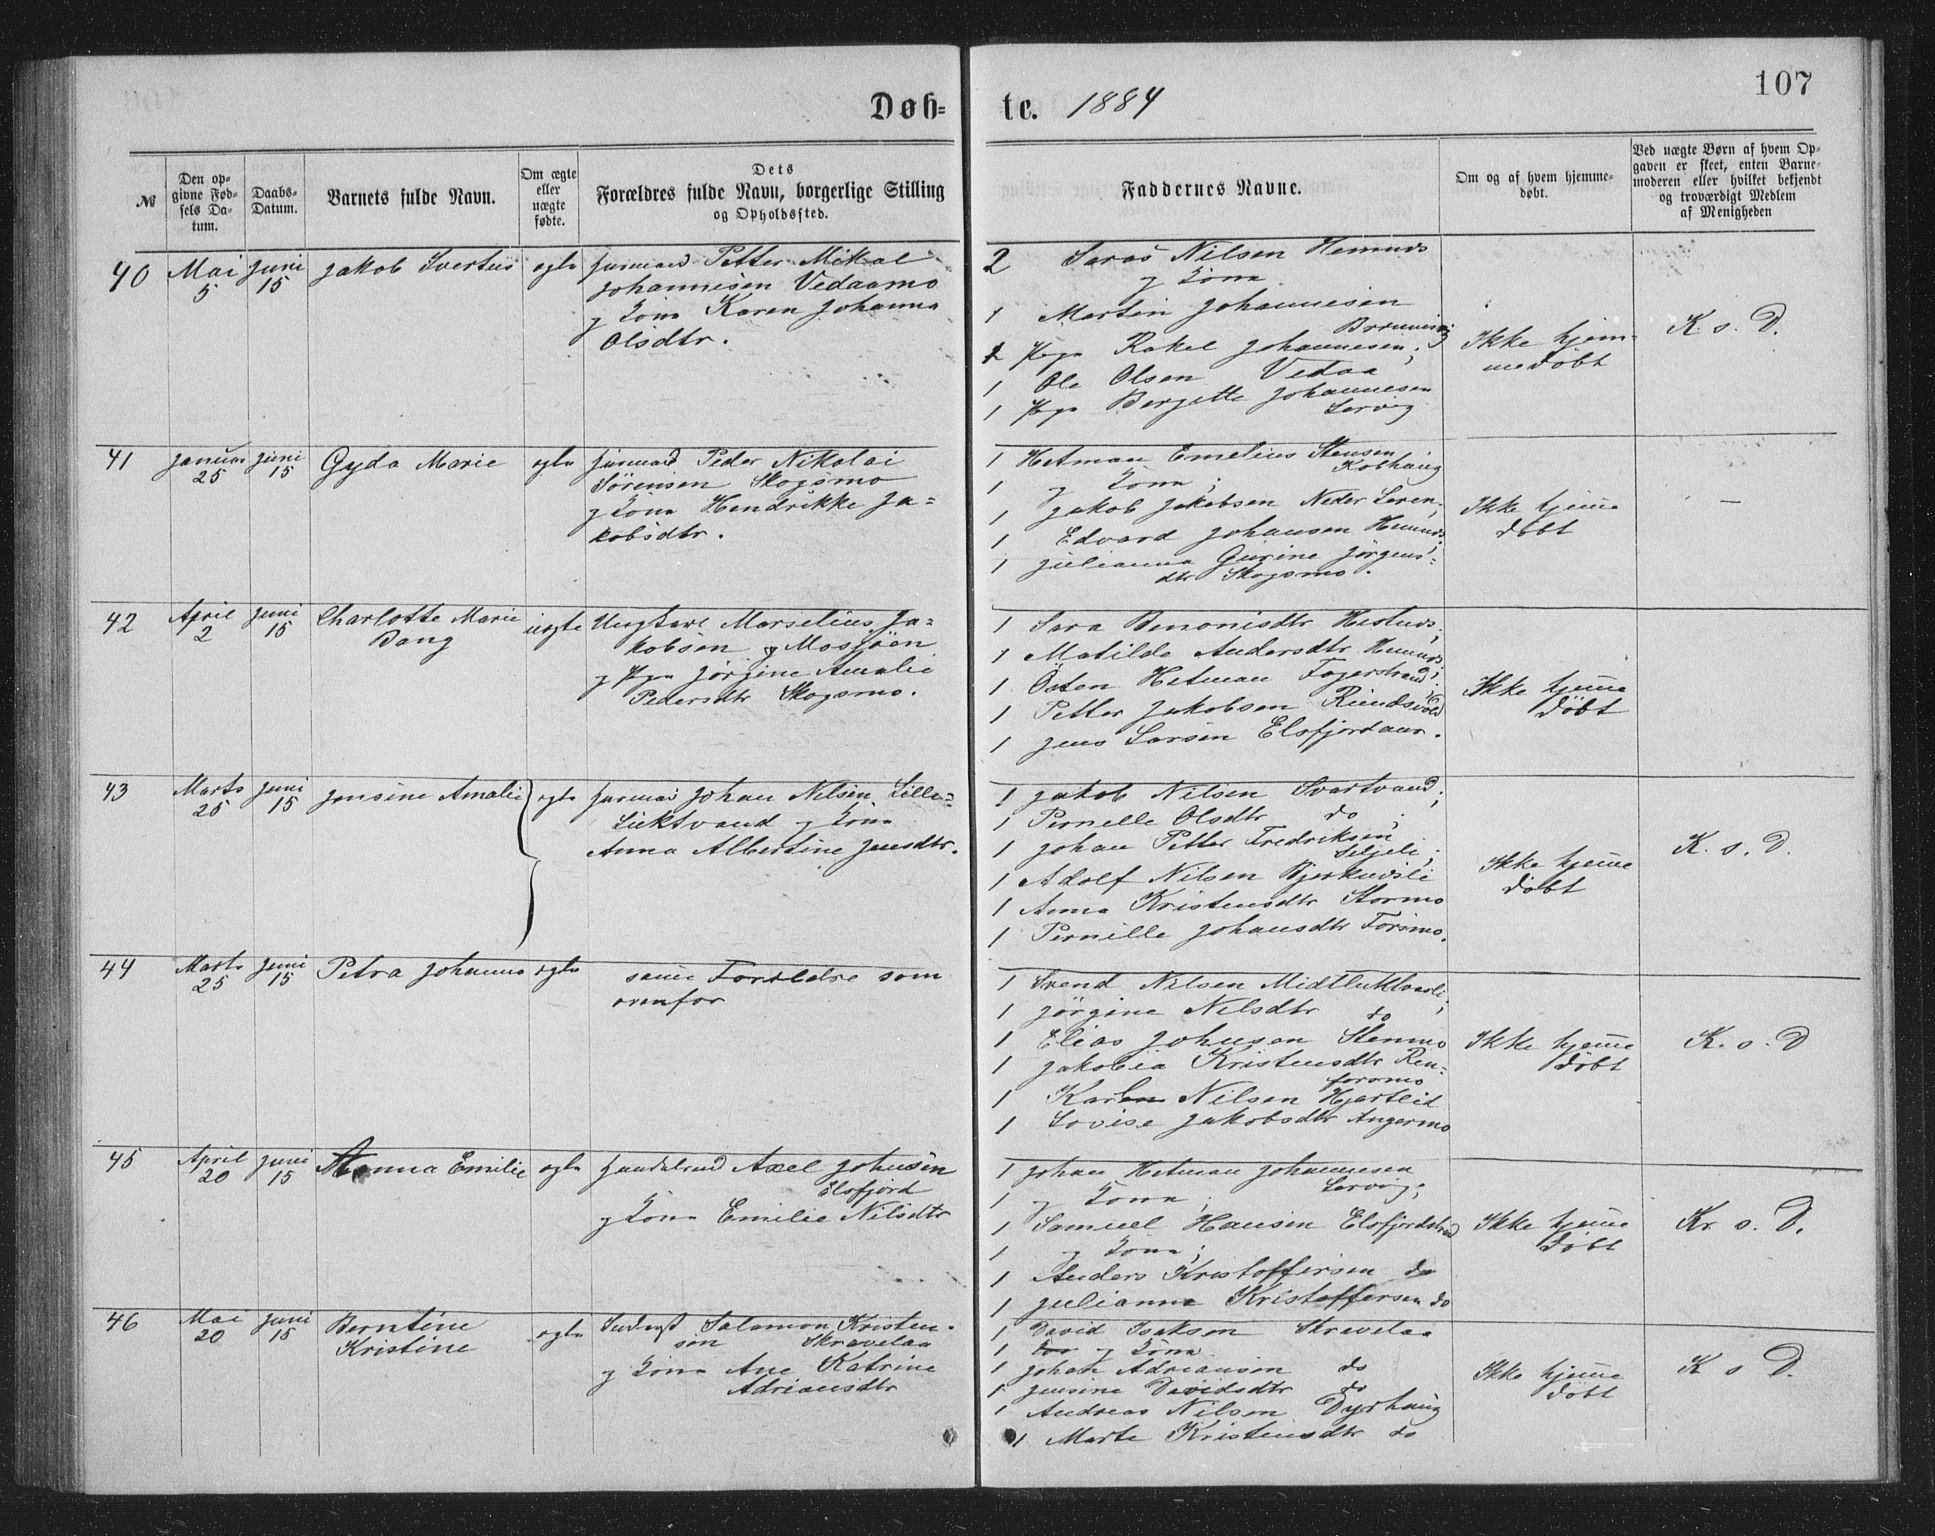 107
Døb-
te. 1884
№
Den op-
givne Fød-
sels Da-
tum.
Daabs-
Datum.
Barnets fulde Navn.
Om ægte
eller
uægte
fødte.
Dets
Forældres fulde Navn, borgerlige Stilling
og Opholdssted.
Faddernes Navne.
Om og af hvem hjemme-
døbt.
Ved uægte Børn af hvem Op-
gaven er skeet, enten Barne-
moderen eller hvilket bekjendt
og troværdigt Medlem
af Menigheden
40
Mai
5
Juni
15
Jakob Svertus
ægte
Huusmand Petter Mikal
Johannesen Vedaamo
og Kona Karen Johanna
Olsdtr.
2 Nilsen Hemnæs
og Kona
1 Martin Johannesen
Brunvig
1 Pige Rakel Johannesen;
1 Ole Olsen Vedaa
1 Pige Bergette Johannesen
Lervig
Ikke hjem-
medøbt
K. s. D.
41
Januar
25
Juni
15
Gyda Marie
ægte
Huusmand Peder Nikolai
Sørensen Skogsmo
og Kona Hendrikke Ja-
kobsdtr.
1 Hetman Emelius Stensen
Kobhaug
1 og Kona;
1 Jakob Jakobsen Neder Leren;
1 Edvard Johansen Hemnæs;
1 Julianna Gurine Jørgens-
dtr Skogsmo.
Ikke hjemme
døbt
–
42
April
2
Juni
15
Charlotte Marie
Bang
uægte
Ungkarl Marselius Ja-
kobsen Mosjøen
og Pige Jørgine Amalie
Pedersdtr Skogsmo.
1 Sara Benonisdtr Hestnæs;
1 Matilde Andersdtr Hemnæs;
1 Østen Hetman Fagerstrand;
1 Petter Jakobsen Rundsvold
1 Jens Larsen Elsfjordaur.
Ikke hjemme
døbt
43
Marts
25
Juni
15
Jonsine Amalie
ægte
Huusmand Johan Nilsen Lille-
Luktvand og Kona
Anna Albertine Jensdtr.
1 Jakob Nilsen Svartvand;
1 Pernelle Olsdtr do;
1 Johan Petter Fredriksen
Seljeli;
1 Adolf Nilsen Bjerknesli
1 Anna Kristensdtr Stormo
1 Pernille Johansdtr Forsmo.
Ikke hjemme
døbt
K. s. D.
44
Marts
25
Juni
15
Petra Johanna
ægte
samme Forældre som
ovenfor
1 Svend Nilsen Midtluktvasli;
1 Jørgine Nilsdtr do
1 Elias Johnsen Stenmo
1 Jakobia Kristensdtr Ren-
forsmo
1 Karl Nilsen Hjartlid
1 Lovise Jakobsdtr Angermo
Ikke hjemme
døbt
K. s. D
45
April
20
Juni
15
Hanna Emilie
ægte
Handelsmd Axel Johnsen
Elsfjord
og Kona Emilie Nilsdtr
1 Johan Hetman Johannesen
Lervig;
1 og Kona;
1 Samuel Hansen Elsfjordstrand
1 og Kona;
1 Anders Kristoffersen do
1 Julianna Kristoffersen do
Ikke hjemme
døbt
Kr. s. D.
46
Mai
20
Juni
15
Berntine
Kristine
ægte
Salamon Kristen-
sen Skravelaa
og Kona Ane Katrine
Adriansdtr
1 David Isaksen Skravelaa
1 og Kona
1 Johan Adriansen do
1 Jensine Davidsdtr do
1 Andreas Nilsen Dyrhaug
1 Marte Kristensdtr do
Ikke hjemme
døbt
K s D.